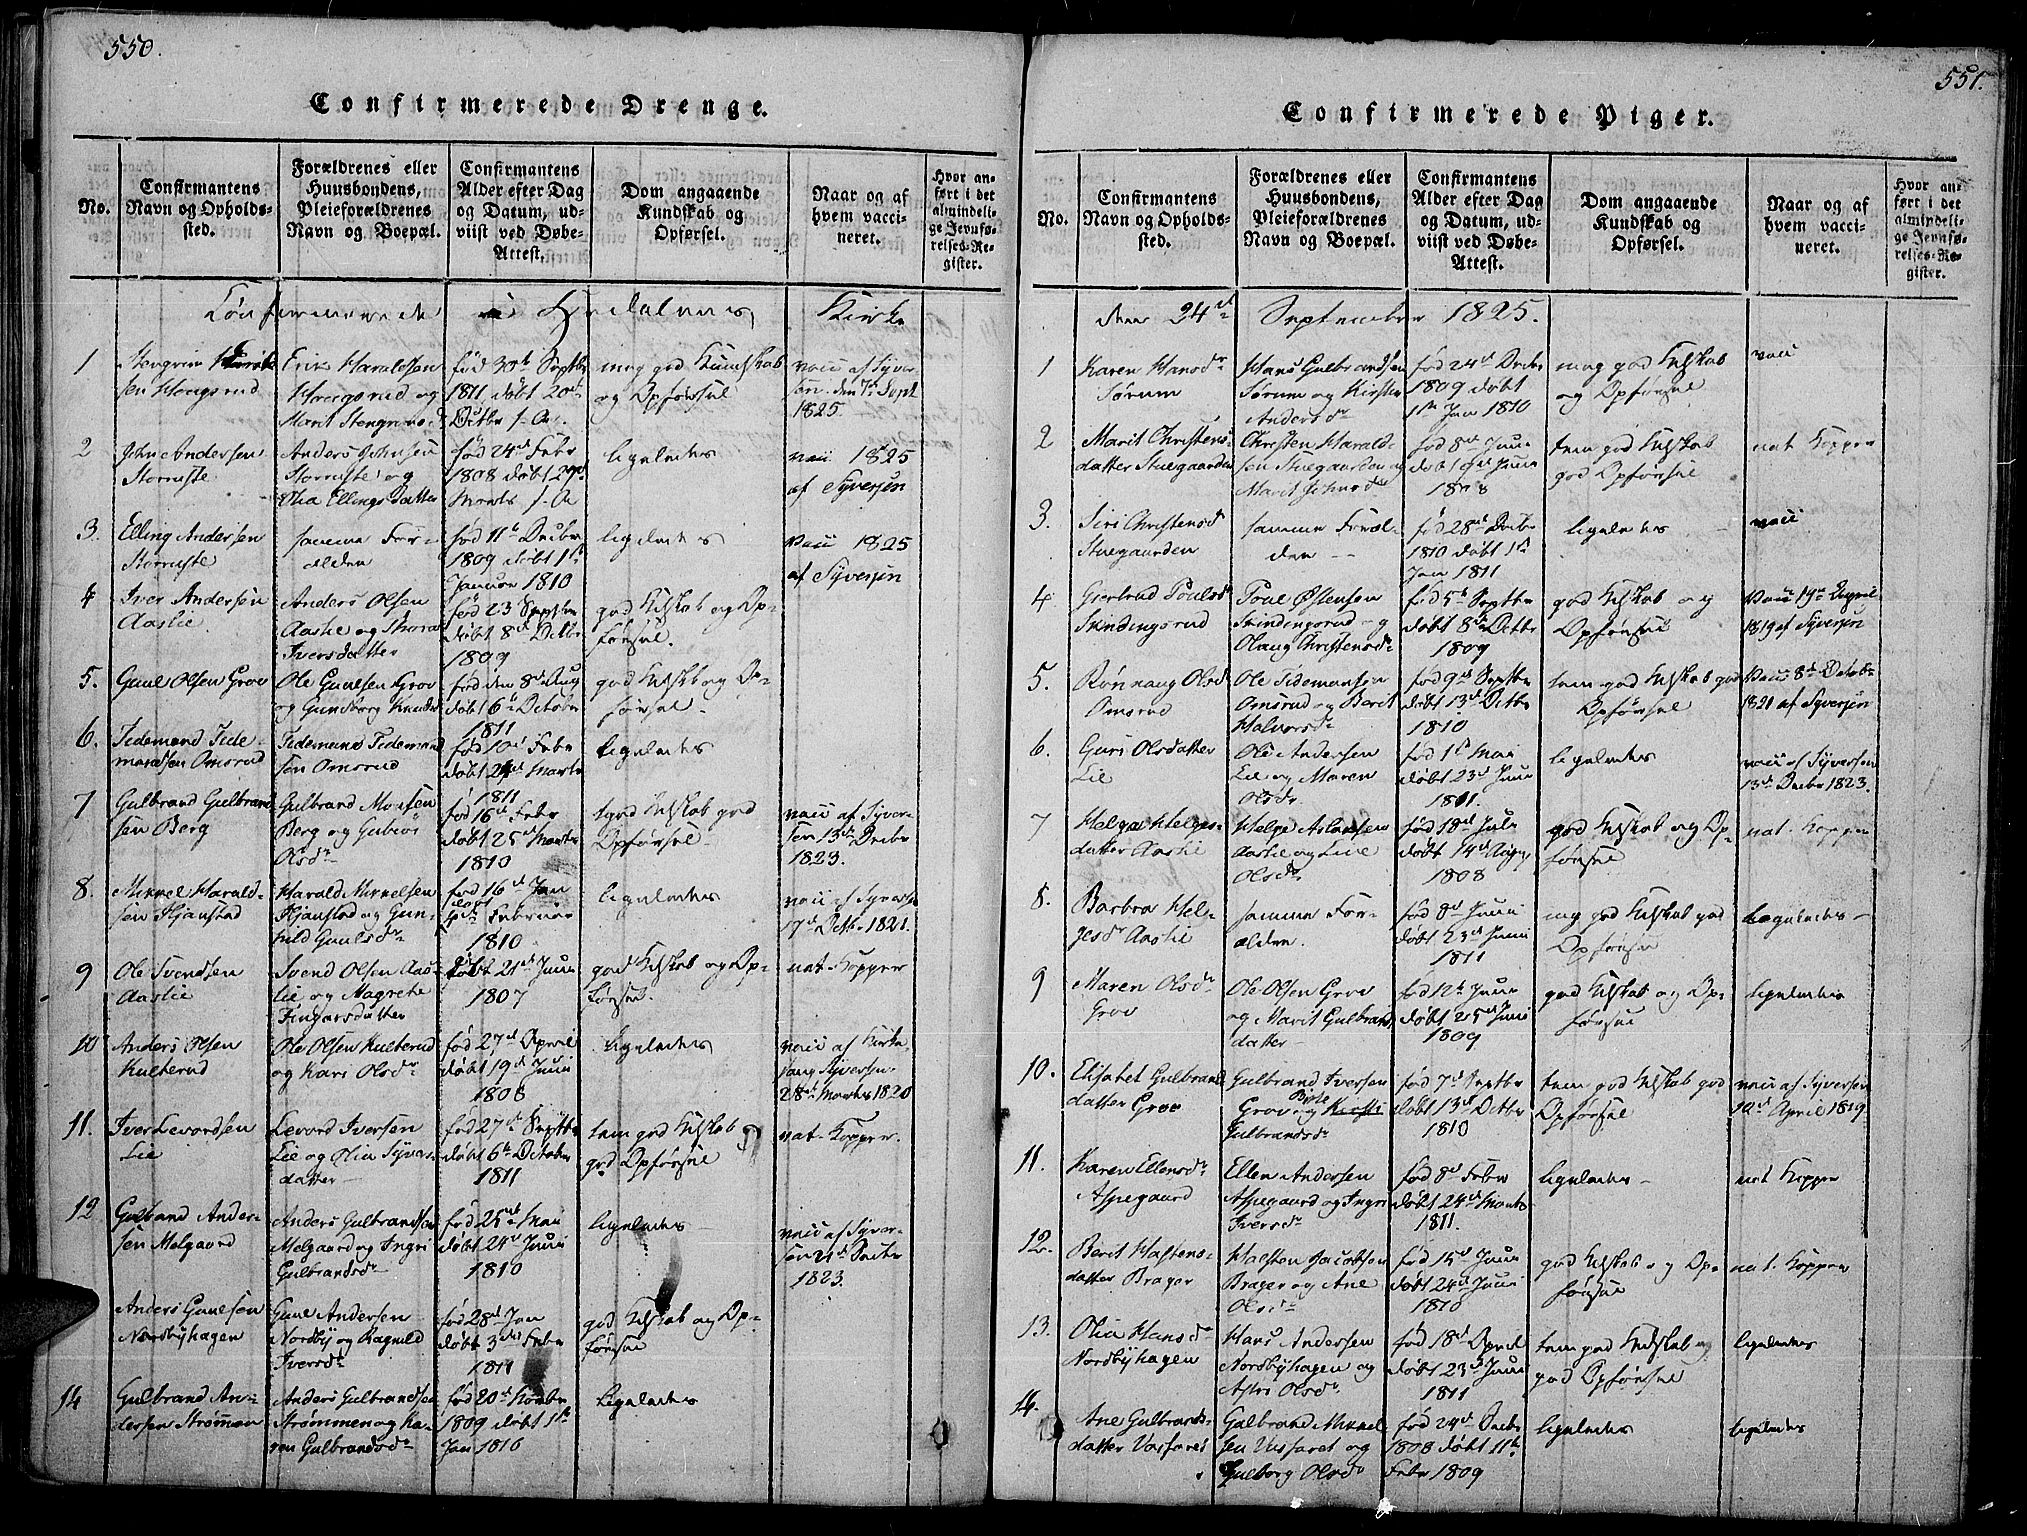 550.
Confirmerede Drenge.
No.
Confirmantens
Navn og Opholds-
sted.
Forældrenes eller
Huusbondens,
Pleieforældrenes
Navn og Boepæl.
Confirmantens
Alder efter Dag
og Datum, ud-
viist ved Døbe-
Attest.
Dom angaaende
Kundskab og
Opførsel.
Naar og af
hvem vacci-
neret.
Hvor an-
ført i det
almindeli-
ge Jevnfø-
relses-Re-
gister.
Confirmerede i Hedalens Kirke
1
sen Haugsrud
Erik Haraldsen
Haugsrud og
Marit Stengrimsd
fød 30te Septbr
1811 døbt 20de
Octbr s. A.
meg god Kundskab
og Opførsel
vacc af Syver-
sen den 7de Sept
1825.
2
John Andersen
Storruste
Anders Johnsen
Storruste og
Olia Ellingsdatter
fød 24de Febr
1808 døbt 29de
Marts s. A
ligeledes
vacc 1825
af Syversen
3.
Elling Andersen
Storruste
samme For-
ælden
fød 11te Decbr
1809 døbt 1ste
Januar 1810
ligeledes
vacc 1825
af Syversen
4
Iver Andersen
Aaslie
Anders Olsen
Aaslie og
Iversdatter
fød 23de Septbr
døbt 8de Octbr
1809
god Kdskab og Op-
førsel.
5.
Guul Olsen Grov
Ole Guulsen Grov
og Gundborg Knuds
fød den 8de Aug
døbt 6te Octobr
1811
god Kdskb og Op-
førsel.
6.
Tidemand Tide-
mandsen Omsrud
Tidemand Tidemand
sen Omsrud
fød 10de Febr
døbt 24de Marts
1811
ligeledes
7
Gulbrand Gulbrand
sen Berg
Gulbrand Monsen
Berg og
Olsdr
fød 16de Febr
døbt 25de Marts
1810
tgod Kdskab god
Opførsel
vacc af Syver-
sen 13de Decbr
1823.
8.
Mikkel Harald-
sen Kjanstad
Harald Mikkelsen
Kjanstad og Gun-
hild Guulsdr
fød 16de Jan
døbt
4de Februar
1810.
ligeledes
vacc af Syvers
17de Octbr 1821.
9
Ole Svendsen
Aaslie
Svend Olsen Aas-
lie og Magrete
Fingarsdatter
døbt 21de Juni
1807
god Kdskab og Op-
førsel.
nat. Kopper
10
Anders Olsen
Kulterud
Ole Olsen Kulterud
og Kari Olsdr
fød 27de April
døbt 19de Juni
1808
ligeledes
vacc af Kirke
sang Syversen
28de Marts 1820
11.
Iver Levordsen
Lie
Levord Iversen
Lie og Olia Syvers
datter
fød 27de Septbr
døbt 6te Octobr
1811
tem god Kdskab
god Opførsel
nat. Kopper.
12
Gulbrand Ander-
sen Melgaard
Anders Gulbrandsen
Melgaard og Ingri
Gulbrandsdr
fød 25de Mai
døbt 24de Juni
1810
ligeledes
vacc af Syver-
sen 21de Decbr
1823.
Anders Guulsen
Nordbyhagen
Guul Andersen
Nordby og Ragnild
Iversdr
fød 28de Jan
døbt 3die Febr
1811
god Kdskab og Op-
førsel
14
Gulbrand An-
dersen Strømmen
Anders Gulbrandsen
Strømmen og Ka-
ren Gulbrandsdr
fød 20de Novbr
1809 døbt 1ste
Jan 1810
ligeledes
551.
Confirmerede Piger.
No.
Confirmantens
Navn og Opholds-
sted.
Forældrenes eller
Huusbondens,
Pleieforældrenes
Navn og Boepæl.
Confirmantens
Alder efter Dag
og Datum, ud-
viist ved Døbe-
Attest.
Dom angaaende
Kundskab og
Opførsel.
Naar og af
hvem vacci-
neret.
Hvor an-
ført i det
almindeli-
ge Jevnfø-
relses-Re-
gister.
den 24de September 1825.
1
Karen Hansdr
Sørum
Hans Gulbrandsen
Sørum og Kirsten
Andersdr
fød 24de Decbr
1809 døbt
1ste Jan 1810
meg god Kdskab
og Opførsel
vacc
2
Marit Christens-
datter Stuegaarden
Christen Harald-
sen Stuegaarden og
Marit Johnsdr
fød 8de Juni
døbt Juni
1808
tem god Kdskab
god Opførsel
nat Kopper
3.
Siri Christensd
Stuegaarden
samme Foræl-
dren
fød 28de Decbr
1810 døbt 1ste
Jan 1811
ligeledes
vacc
4
Giertrud Poulsd
Skindingsrud
Poul Østensen
Skindingsrud og
Olaug Christensdr
fød 5te Septbr
døbt 8de Octbr
1809
god Kdskab og
Opførsel
vacc 19de April
1819 af Syversen
5.
Rønnaug Olsd
Omsrud
Ole Tidemansen
Omsrud og Berit
Halvorsdr
fød 9de Septbr
døbt 13de Octbr
1810
tem god Kdskab god
Opførsel
vacc 8de Octob
1821 af Syversen
6.
Guri Olsdatter
Lie
Ole Andersen
Lie og Maren
Olsdr
fød 1ste Mai
døbt 23de Juni
1811.
ligeledes
vacc af Syversen
13de Decbr 1823.
7
Helga Helges-
datter Aaslie
Helge Aslaksen
Aaslie og
Olsdr
fød 18de Juli
døbt 14de Aug
1808
god Kdskab og Op-
førsel
nat. Kopper
8.
Barbra Hel-
gesdr Aaslie
samme For-
ælden.
fød 8de Juni
døbt 23de Juni
1811
mg god Kdskab god
Opførsel
ligeledes
9
Maren Olsdr
Grov
Ole Olsen Grov
og Marit Gulbrands
datter
fød 12te Juni
døbt 25de Juni
1809
god Kdskab og Op-
førsel
ligeledes
10.
Elisabet Gulbrands
datter Grov
Gulbrand Iversen
Grov og Kirsti
Gulbrandsdr
fød 7de Septbr
døbt 13de Octbr
1810
tem god Kdskab god
Opførsel
vacc af Syversen
19de April 1819.
11.
Karen Ellensdr
Aspegaard
Ellen Andersen
Aspegaard og Ingri
Iversdr
fød 8de Febr
døbt 24de Marts
1811.
ligeledes
nat Kopper
12.
Berit Halstens-
datter Brager
Halsten Jacobsen
Brager og Ane
Olsdr
fød 15de Juni
døbt 24de Juni
1810
god Kdskab og Op-
førsel
nat. Kopper
13.
Olia Hansdr
Nordbyhagen
Hans Andersen
Nordbyhagen og
Astri Olsdr
fød 18de April
døbt 23de Juni
1811
tem god Kdskab og
god Opførsel
ligeledes
14.
Ane Gulbrands-
datter Vasfaret
Gulbrand Mikkel
sen Vasfaret og
Gulborg Olsdr
fød 24de Decbr
1808 døbt 11te
Febr 1809
ligeledes
ligeledes